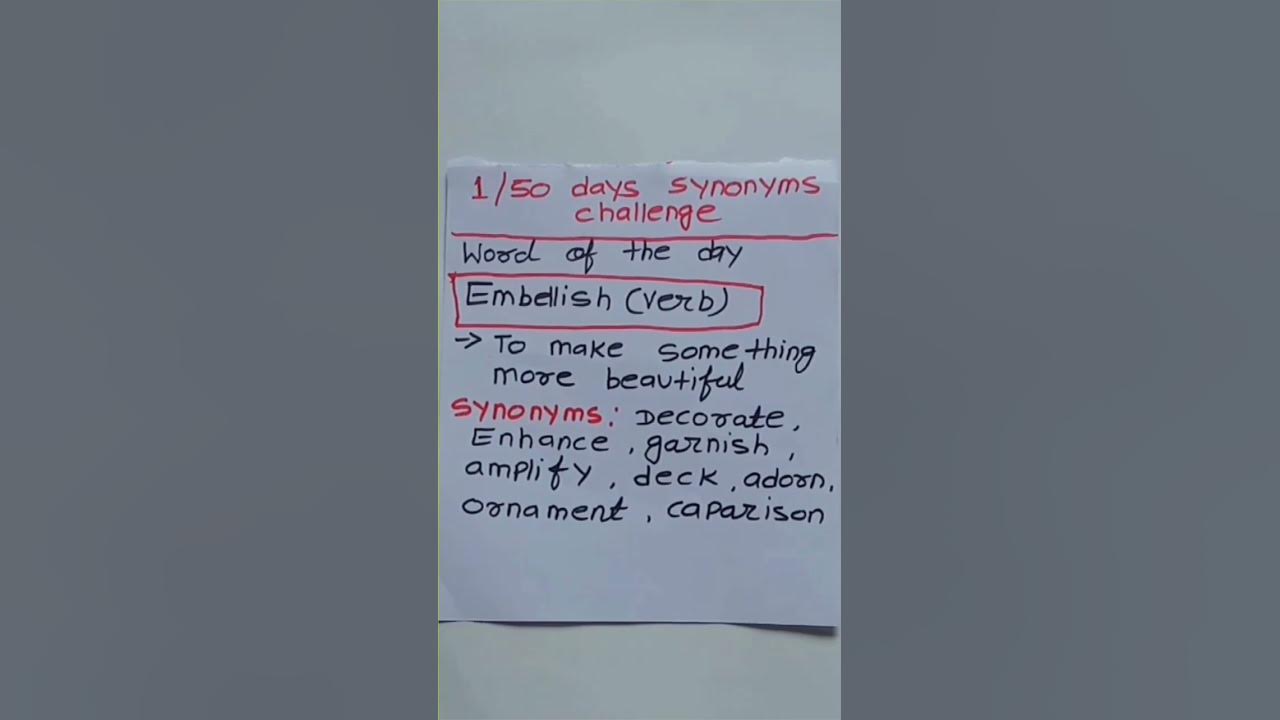 1/50 days synonyms
challenge
Word of the day
Embellish (verb)
→ To make something
more beautiful
Synonyms: Decorate,
Enhance, garnish,
amplify, deck, adorn,
ornament, caparison